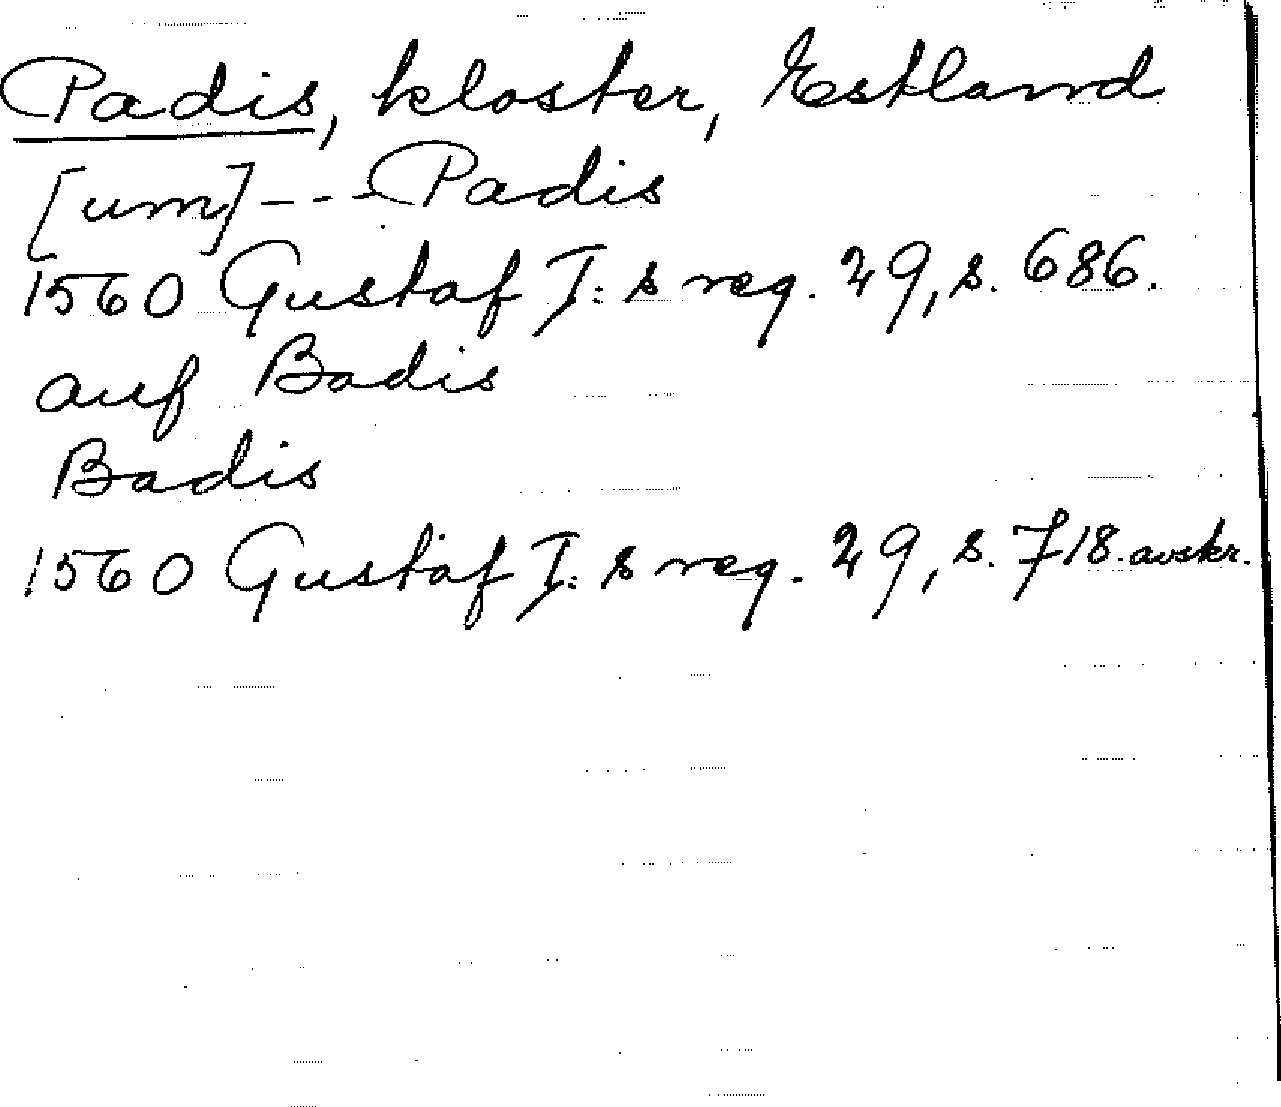 Padis, kloster, Estland
[um] --- Padis
1560 Gustaf I:s reg. 29, s. 686.
auf Badis
Badis
1560 Gustaf I:s reg. 29, s. 718. avskr.